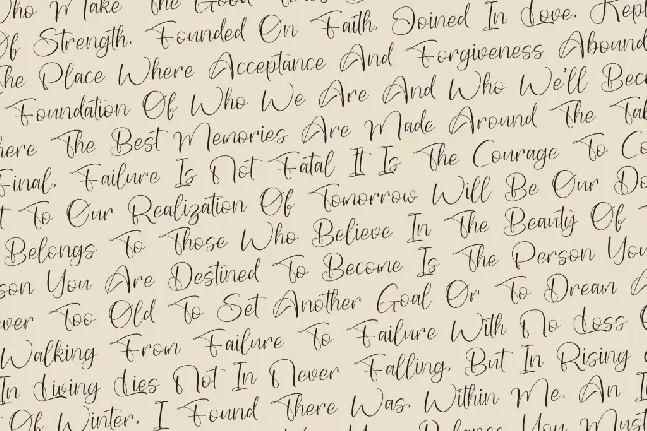 Who Make The Good Times
Of Strength. Founded On Faith. Joined In Love. Kept
The Place Where Acceptance And Forgiveness Abound
Foundation Of Who We Are And Who We'll Bec
here The Best Memories Are Made Around The Tab
Final. Failure Is Not Fatal It Is The Courage To Co
t To Our Realization Of Tomorrow Will Be Our Do
Belongs To Those Who Believe In The Beauty Of T
son You Are Destined To Become Is The Person You
ver Too Old To Set Another Goal Or To Dream A
Walking From Failure To Failure With No Loss O
In Living Lies Not In Never Falling, But In Rising
Of Winter, I Found There Was, Within Me, An I
You Must